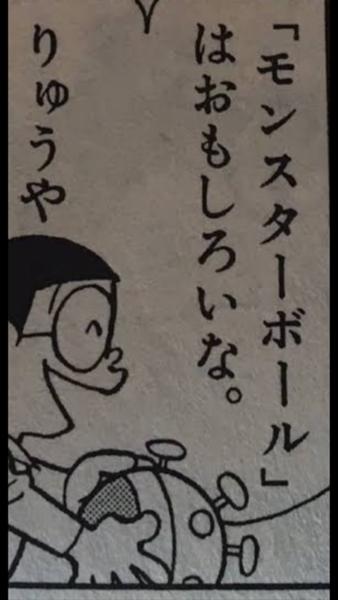 「モンスターボール」
はおもしろいな。
りゅうや